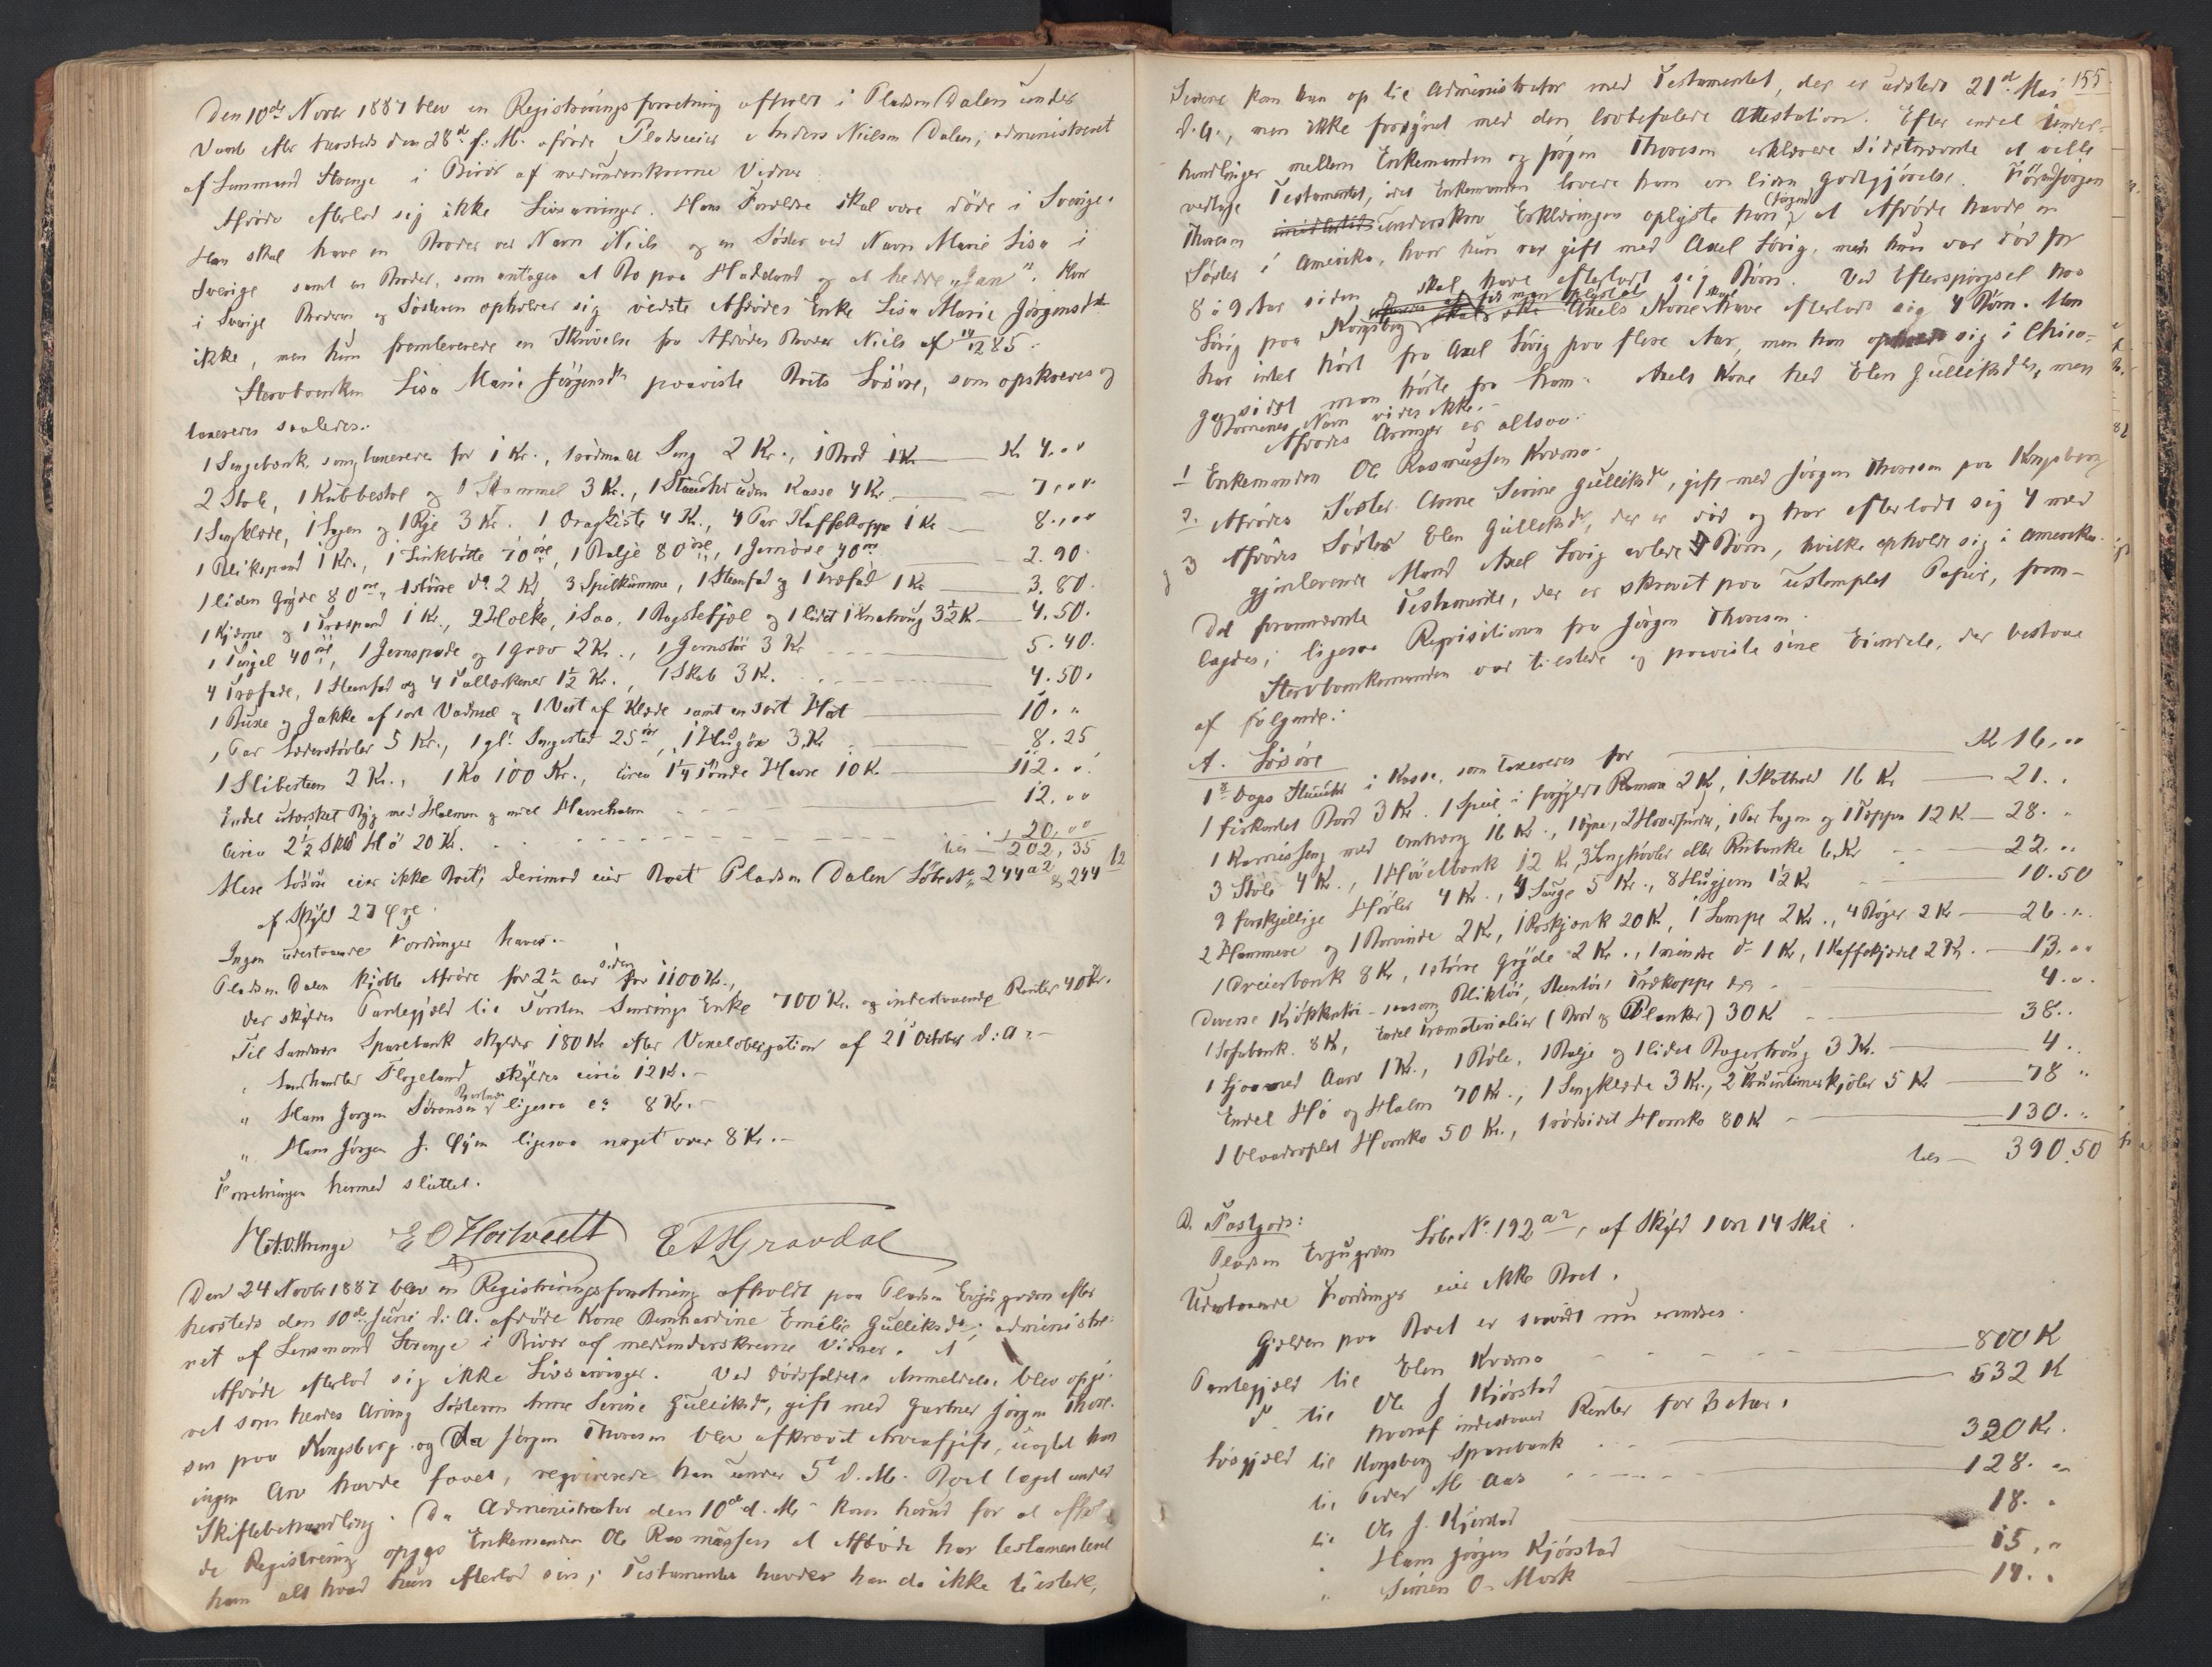 Den 10de Novbr 1887 blev en Registreringsforretning afholdt i Pladsen Dalen under
Vamb efter hersteds den 28de f. M. afdøde Pladseier Anders Nielsen Dalen, administreret
af Lensmand Strenge i Bivær af medunderskrevne Vidner.
Afdøde efterlod sig ikke Livsarvinger. Hans Forældre skal være døde i Sverige.
Han skal have en Broder ved Navn Niels og en Søster ved Navn Marie Lisa i
Sverige samt en Broder, som antages at Bo paa Hadeland og at hedde "Jan". Hvor
i Sverige Broderen og Søsteren opholder sig vidste Afdødes Enke Lisa Marie Jørgensdtr
ikke, men hun fremleverede en Skrivelse fra Afdødes Broder Niels af 14/12 85.
Stervboenken Lisa Marie Jørgensdtr paaviste Boets Løsøre, som opskreves og
taxeredes saaledes:
1 Sengebænk, som taxeredes for 1 Kr., 1 rødmalt Seng 2 Kr., 1 Bord 1 Kr — Kr 4.00
2 Stole, 1 Kubbestol og 1 Skammel 3 Kr., 1 Stueuhr uden Kasse 4 Kr. — 7.00
1 Sengklæde, 1 Lagen og 1 Rye 3 Kr. 1 Dragkiste 4 Kr., 4 Par Kaffekopper 1 Kr — 8.00
1 Blikspand 1 Kr., 1 Zinkbøtte 70 øre, 1 Balje 80 øre, 1 Jernøse 40 øre — 2.90
1 liden Gryde 80 øre, 1 større do 2 Kr, 3 Spilkumme, 1 Steenfad og 1 Træfad 1 Kr — 3.80.
1 Kjærne og 1 Træspand 1 Kr., 2 Holke, 1 Saa, 1 Bagstefjøl og 1 lidet Knatroug 3½ Kr — 4.50.
1 Tergel 40 øre, 1 Jernspade og 1 Græv 2 Kr., 1 Jernstør 3 Kr — 5.40.
4 Træfade, 1 Steenfad og 4 Tallerkener 1½ Kr., 1 Skab 3 Kr. — 4.50.
1 Buxe og Jakke af sort Vadmel og 1 Vest af Klæde samt en sort Hat — 10. "
1 Par Læderstøvler 5 Kr., 1 gl. Sengested 25 øre, 1 Hugøxe 3 Kr — 8.25
1 Slibesteen 2 Kr., 1 Ko 100 Kr., circa 1¼ Tønde Havre 10 Kr. — 112. "
Endel utærsket Byg med Halmen og endel Havrehalm — 12.00
Circa 2½ Skd Hø 20 Kr. — 20.00
ties — 202,35
Mere Løsøre eier ikke Boet; derimod eier Boet Pladsen Dalen LøbeNr 244 a2 & 244 b2
af Skyld 27 Øre.
Ingen udestaaende Fordringer haves.
Pladsen Dalen kjøbte Afdøde for 2½ Aar siden for 1100 Kr.,
Der skyldes Pantegjæld til Torsten Enke 700 Kr. og indestaaende Renter 40 Kr.
Til Sandsvær Sparebank skyldes 180 Kr efter Vexelobligation af 21 October d: A:
" Landhandler Flogeland skyldes circa 12 Kr. –
" Hans Jørgen Sørensen ligesaa ca 8 Kr. –
" Hans Jørgen J. Øyen ligesaa noget over 8 Kr. –
Forretningen hermed sluttet.
E O Hostvedt E A Gravdal
Den 24 Novbr 1887 blev en Registreringsforretning afholdt paa Pladsen Evjugræn efter
hersteds den 10de Juni d. A. afdøde Kone Bernhardine Emilie Gulliksdtr; administre-
ret af Lensmand Strenge i Bivær af medunderskrevne Vidner.
Afdøde efterlod sig ikke Livsarvinger. Ved Dødsfaldets Anmeldelse blev opgi-
vet som hendes Arving Søsteren Anne Serine Gulliksdr, gift med Gartner Jørgen Thore-
sen paa Kongsberg og da Jørgen Thoresen blev afkrævet Arveafgift, uagtet han
ingen Arv havde faaet, reqvirerede han under 5te d. M. Boet taget under
Skiftebehandling. Da Administrator den 10de d. M. kom herud for at afhol-
de Registrering opgav Enkemanden Ole Rasmussen at Afdøde har testamenteret
ham alt hvad hun efterlod sig; Testamentet havdes han da ikke tilstede,
155
Senere kom han op til Administrator med Testamentet, der er udstedt 21de Mai
d. A., men ikke forsynet med den lovbefalede Attestation. Efter endel Under-
handlinger mellem Enkemanden og Jørgen Thoresen erklærede Sidstnævnte at ville
vedtage Testamentet, idet Enkemanden lovede ham en liden Godtgjørelse. Førend Jørgen
Thoresen underskrev Erklæringen oplyste han (Jørgen) at Afdøde havde en
Søster i Amerika, hvor hun var gift med Axel Løvig, men hun var død for
8 à 9 Aar siden og skal have efterladt sig Børn. Ved Efterspørgsel hos
Løvig paa Kongsberg Axels Kone skal have efterladt sig 4 Børn. Man
har intet hørt fra Axel Løvig paa flere Aar, men han opholdt sig i Chica-
go, sidst man hørte fra ham. Axels Kone hed Elen Gulliksdtr, men
Børnenes Navn vides ikke. –
Afdødes Arvinger er altsaa:
1 Enkemanden Ole Rasmussen Kværno.
2. Afdødes Søster Anne Serine Gulliksdr, gift med Jørgen Thoresen paa Kongsberg
3 Afdødes Søster Elen Gulliksdr, der er død og har efterladt sig 4 med
gjenlevende Mand Axel Løvig avlede Børn, hvilke opholde sig i Amerika.
Det forannævnte Testamente, der er skrevet paa ustemplet Papir, frem-
lagdes; ligesaa Reqvisitionen fra Jørgen Thoresen.
Stervboenkemanden var tilstede og paaviste sine Eiendele, der bestaae
af følgende:
A. Løsøre
1 8 Dags Stueuhr i Kasse, som taxeredes for — Kr 16,00
1 firkantet Bord 3 Kr. 1 Speil i forgyldt Ramme 2 Kr, 1 Skathol 16 Kr — 21. "
1 Karnisseng med Omhæng 16 Kr., 1 Dyne, 2 Hovedpuder, 1 Par Lagen og 1 Teppe 12 Kr — 28. "
3 Stole 4 Kr., 1 Høvelbænk 12 Kr, 3 Langhøvler eller Rubanke 6 Kr — 22. "
9 forskjellige Høvler 4 Kr., 4 Sauge 5 Kr., 8 Hugjern 1½ Kr — 10.50
2 Hammere og 1 Borvinde 2 Kr, 1 20 Kr, 1 Lampe 2 Kr., 4 Bøger 2 Kr — 26. "
1 Dreierbænk 8 Kr, 1 større Gryde 2 Kr., 1 mindre do 1 Kr, 1 Kaffekjedel 2 Kr. — 13. "
Diverse Kjøkkentøi – saasom Bliktøi, Steentøi, Trækopper — 4. "
1 Sofabænk 8 Kr, Endel Træmaterialier (Bord og Planker) 30 Kr — 38. "
1 med Aare 1 Kr., 1 Bøle, 1 Balje og 1 lidet Bagertroug 3 Kr. — 4. "
Endel Hø og Halm 70 Kr., 1 Sengklæde 3 Kr., 2 Fruentimmerkjoler 5 Kr — 78 "
1 blaadroplet Hornko 50 Kr., 1 rødsidet Hornko 80 Kr — 130. "
ties — 390.50
B. Fastgods:
Pladsen Evjugræn LøbeNr 192 a2, af Skyld 1 Ort 14 Skil.
Udestaaende Fordringer eier ikke Boet.
Gjælden paa Boet er saavidt nu erindres.
Pantegjæld til Elen Kværno — 800 K
do til Ole J Kjørstad — 532 K
hvoraf indestaaende Renter for 3 Aar.
Løsgjæld til Kongsberg Sparebank — 320 Kr.
til Peder M. Aas — 128. "
til Ole J. Kjørstad — 18. "
" Hans Jørgen Kjørstad — 15, "
" Simen O. Mork — 14. "